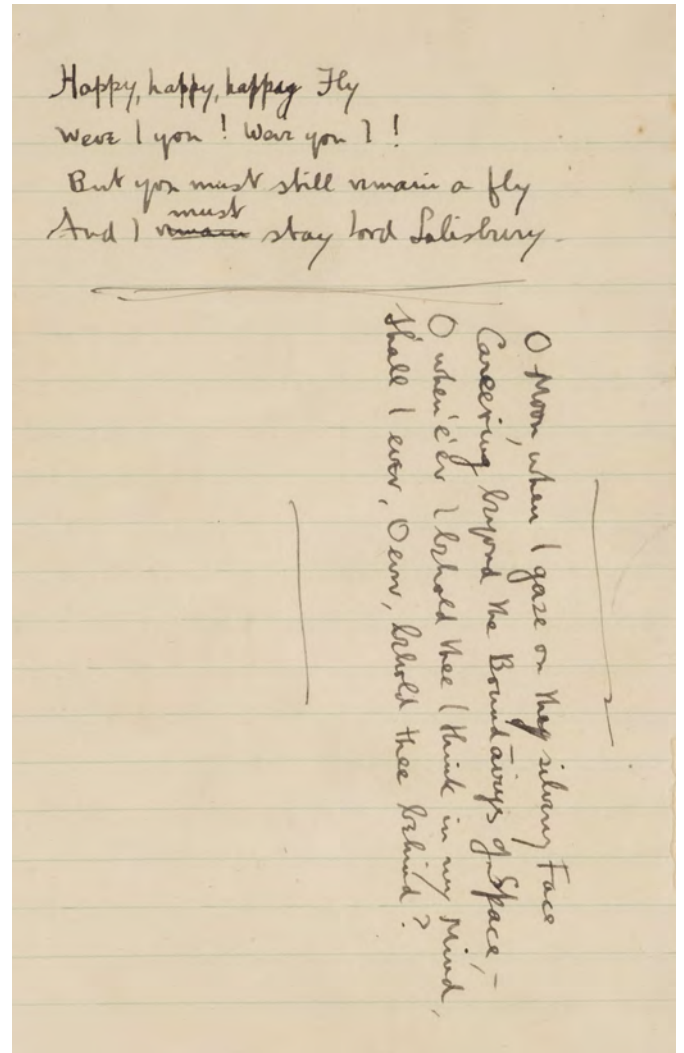 Happy, happy, happy Fly
Were I you! Were you I!
But you must still remain a fly
must
And I remain stay Lord Salisbury.
O Moon, when I gaze on thy silvery Face
Careering beyond the Boundairys of Space,–
O when e'er I behold thee I think in my Mind,
Shall I ever, O ever, behold thee behind?